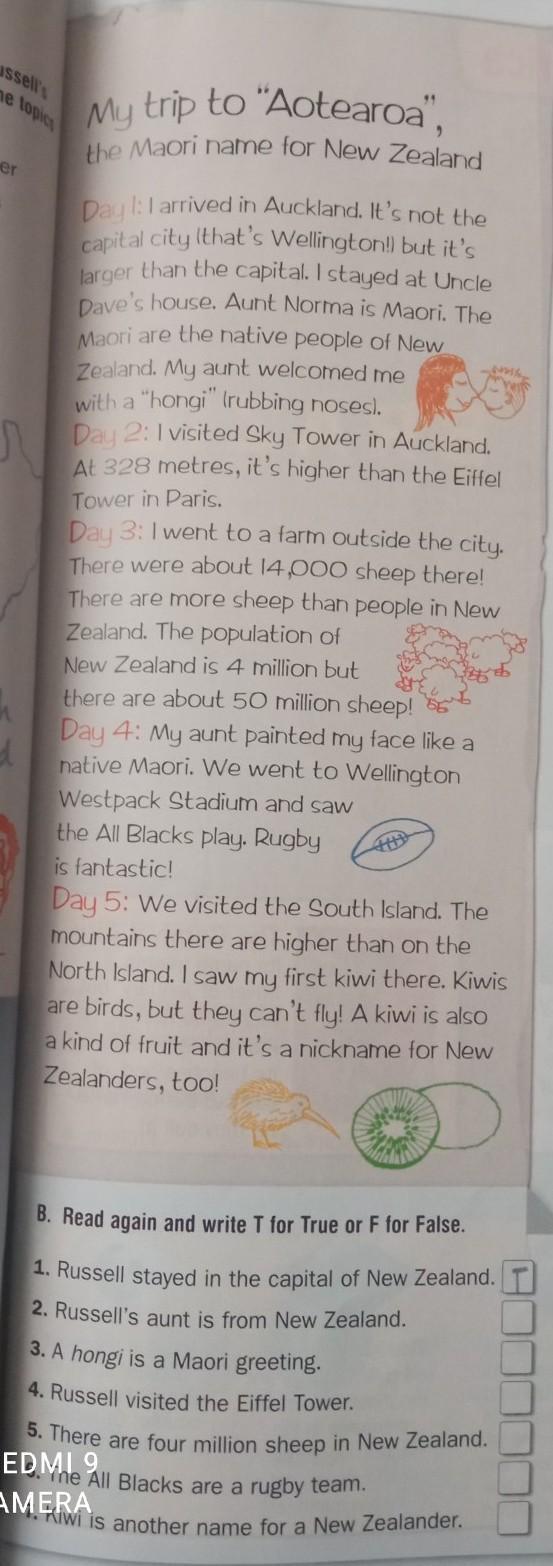 ussell's
he topics
er
My trip to "Aotearoa",
the Maori name for New Zealand
Day 1: I arrived in Auckland. It's not the
capital city (that's Wellington!) but it's
larger than the capital. I stayed at Uncle
Dave's house. Aunt Norma is Maori. The
Maori are the native people of New
Zealand. My aunt welcomed me
with a "hongi" (rubbing noses).
Day 2: I visited Sky Tower in Auckland.
At 328 metres, it's higher than the Eiffel
Tower in Paris.
Day 3: I went to a farm outside the city.
There were about 14,000 sheep there!
There are more sheep than people in New
Zealand. The population of
New Zealand is 4 million but
there are about 50 million sheep!
Day 4: My aunt painted my face like a
native Maori. We went to Wellington
Westpack Stadium and saw
the All Blacks play. Rugby
is fantastic!
Day 5: We visited the South Island. The
mountains there are higher than on the
North Island. I saw my first kiwi there. Kiwis
are birds, but they can't fly! A kiwi is also
a kind of fruit and it's a nickname for New
Zealanders, too!
B. Read again and write T for True or F for False.
1. Russell stayed in the capital of New Zealand. T
2. Russell's aunt is from New Zealand.
3. A hongi is a Maori greeting.
4. Russell visited the Eiffel Tower.
5. There are four million sheep in New Zealand.
The All Blacks are a rugby team.
Kiwi is another name for a New Zealander.
EDMI 9
AMERA